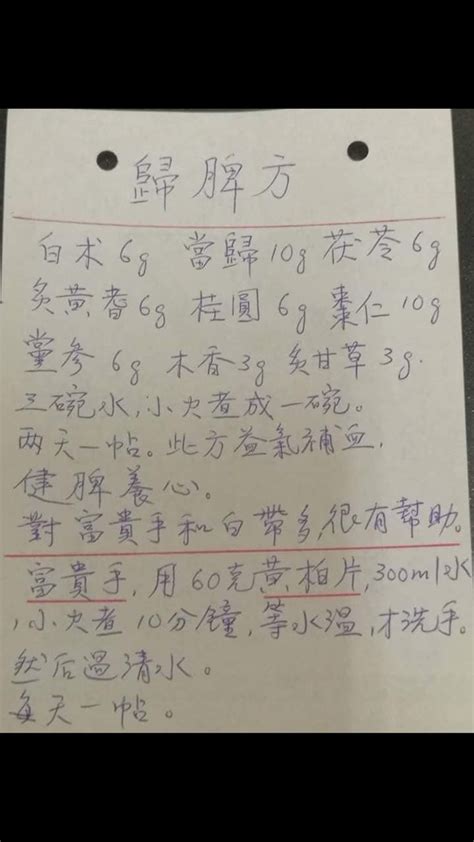 歸脾方
白术6g 當歸10g 茯苓6g
炙黃耆6g 桂圓6g 棗仁10g
黨參6g 木香3g 炙甘草3g.
三碗水,小火煮成一碗。
两天一帖。此方益氣補血,
健脾養心。
對富貴手和白帶多,很有幫助。
富貴手,用60克黃柏片,300ml水
,小火煮10分鐘,等水溫,才洗手。
然后過清水。
每天一帖。